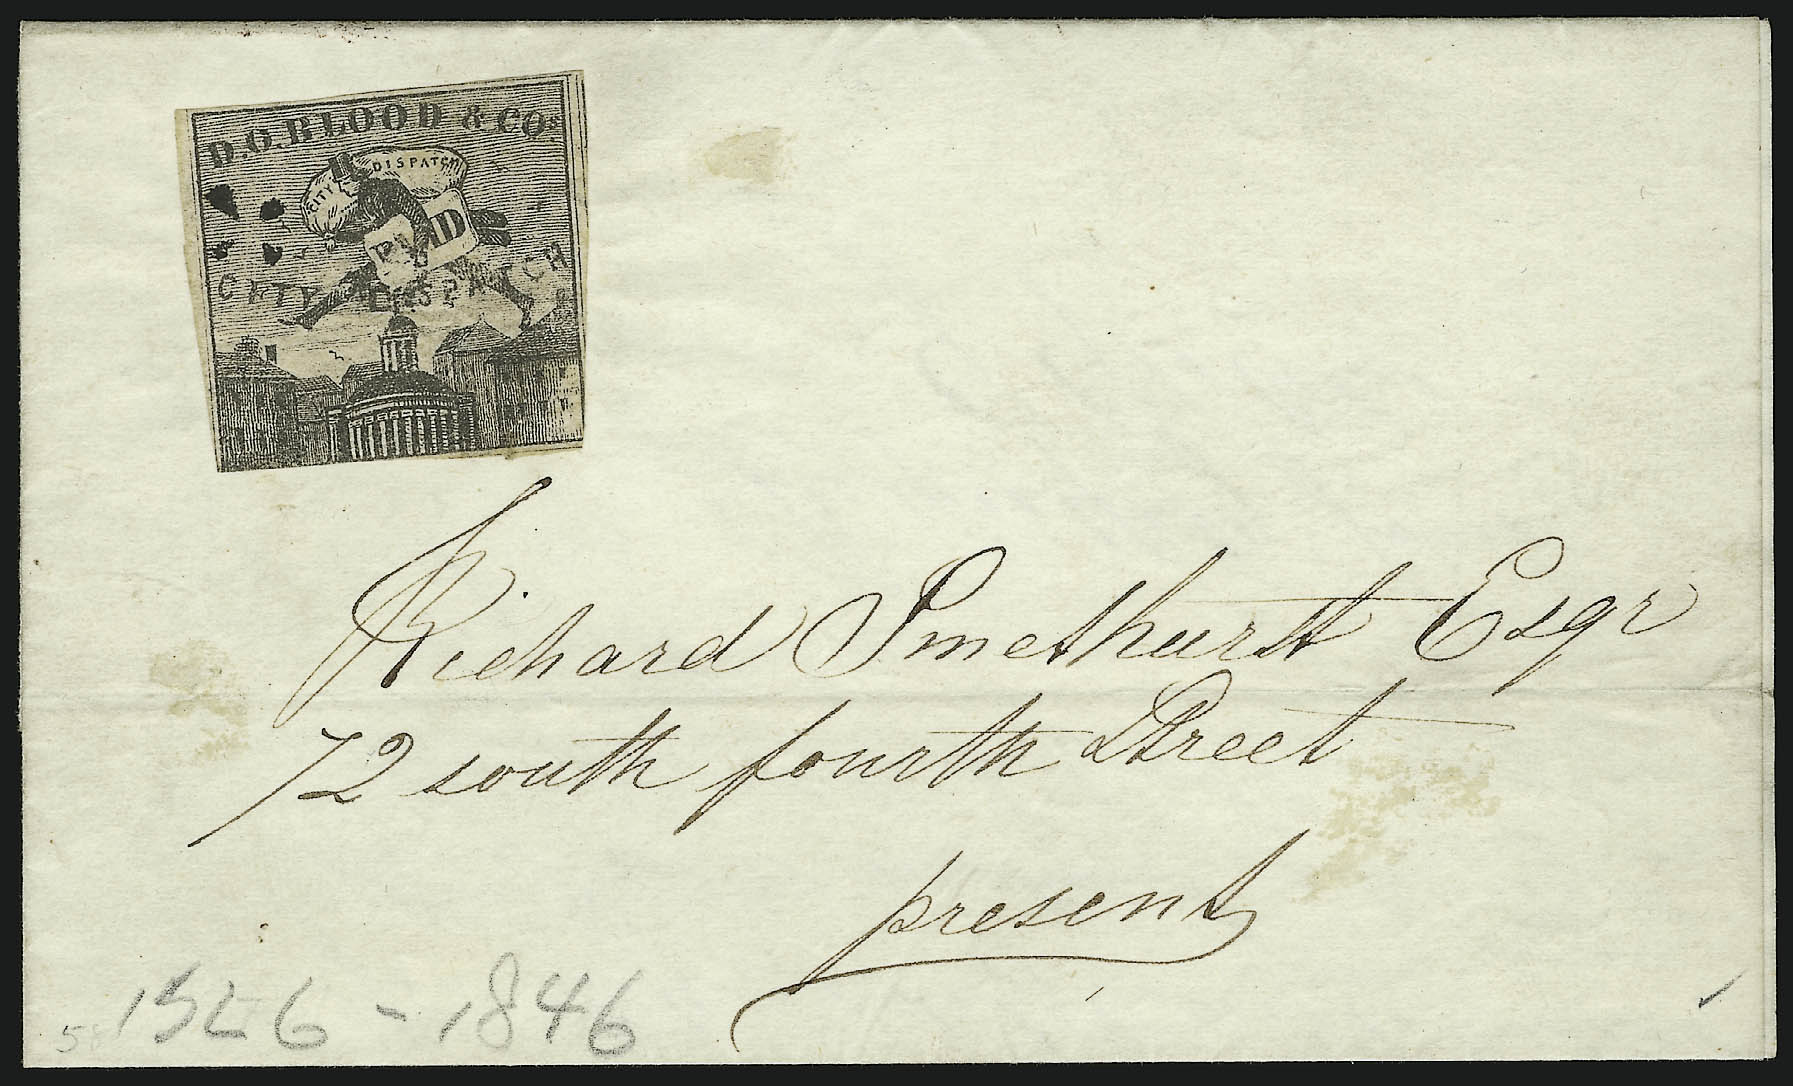 D.O.BLOOD & COs
CITY DISPATCH
PAID
CITY DISPATCH
Richard Smethurst Esqr
72 south fourth Street
present
15L6 - 1846